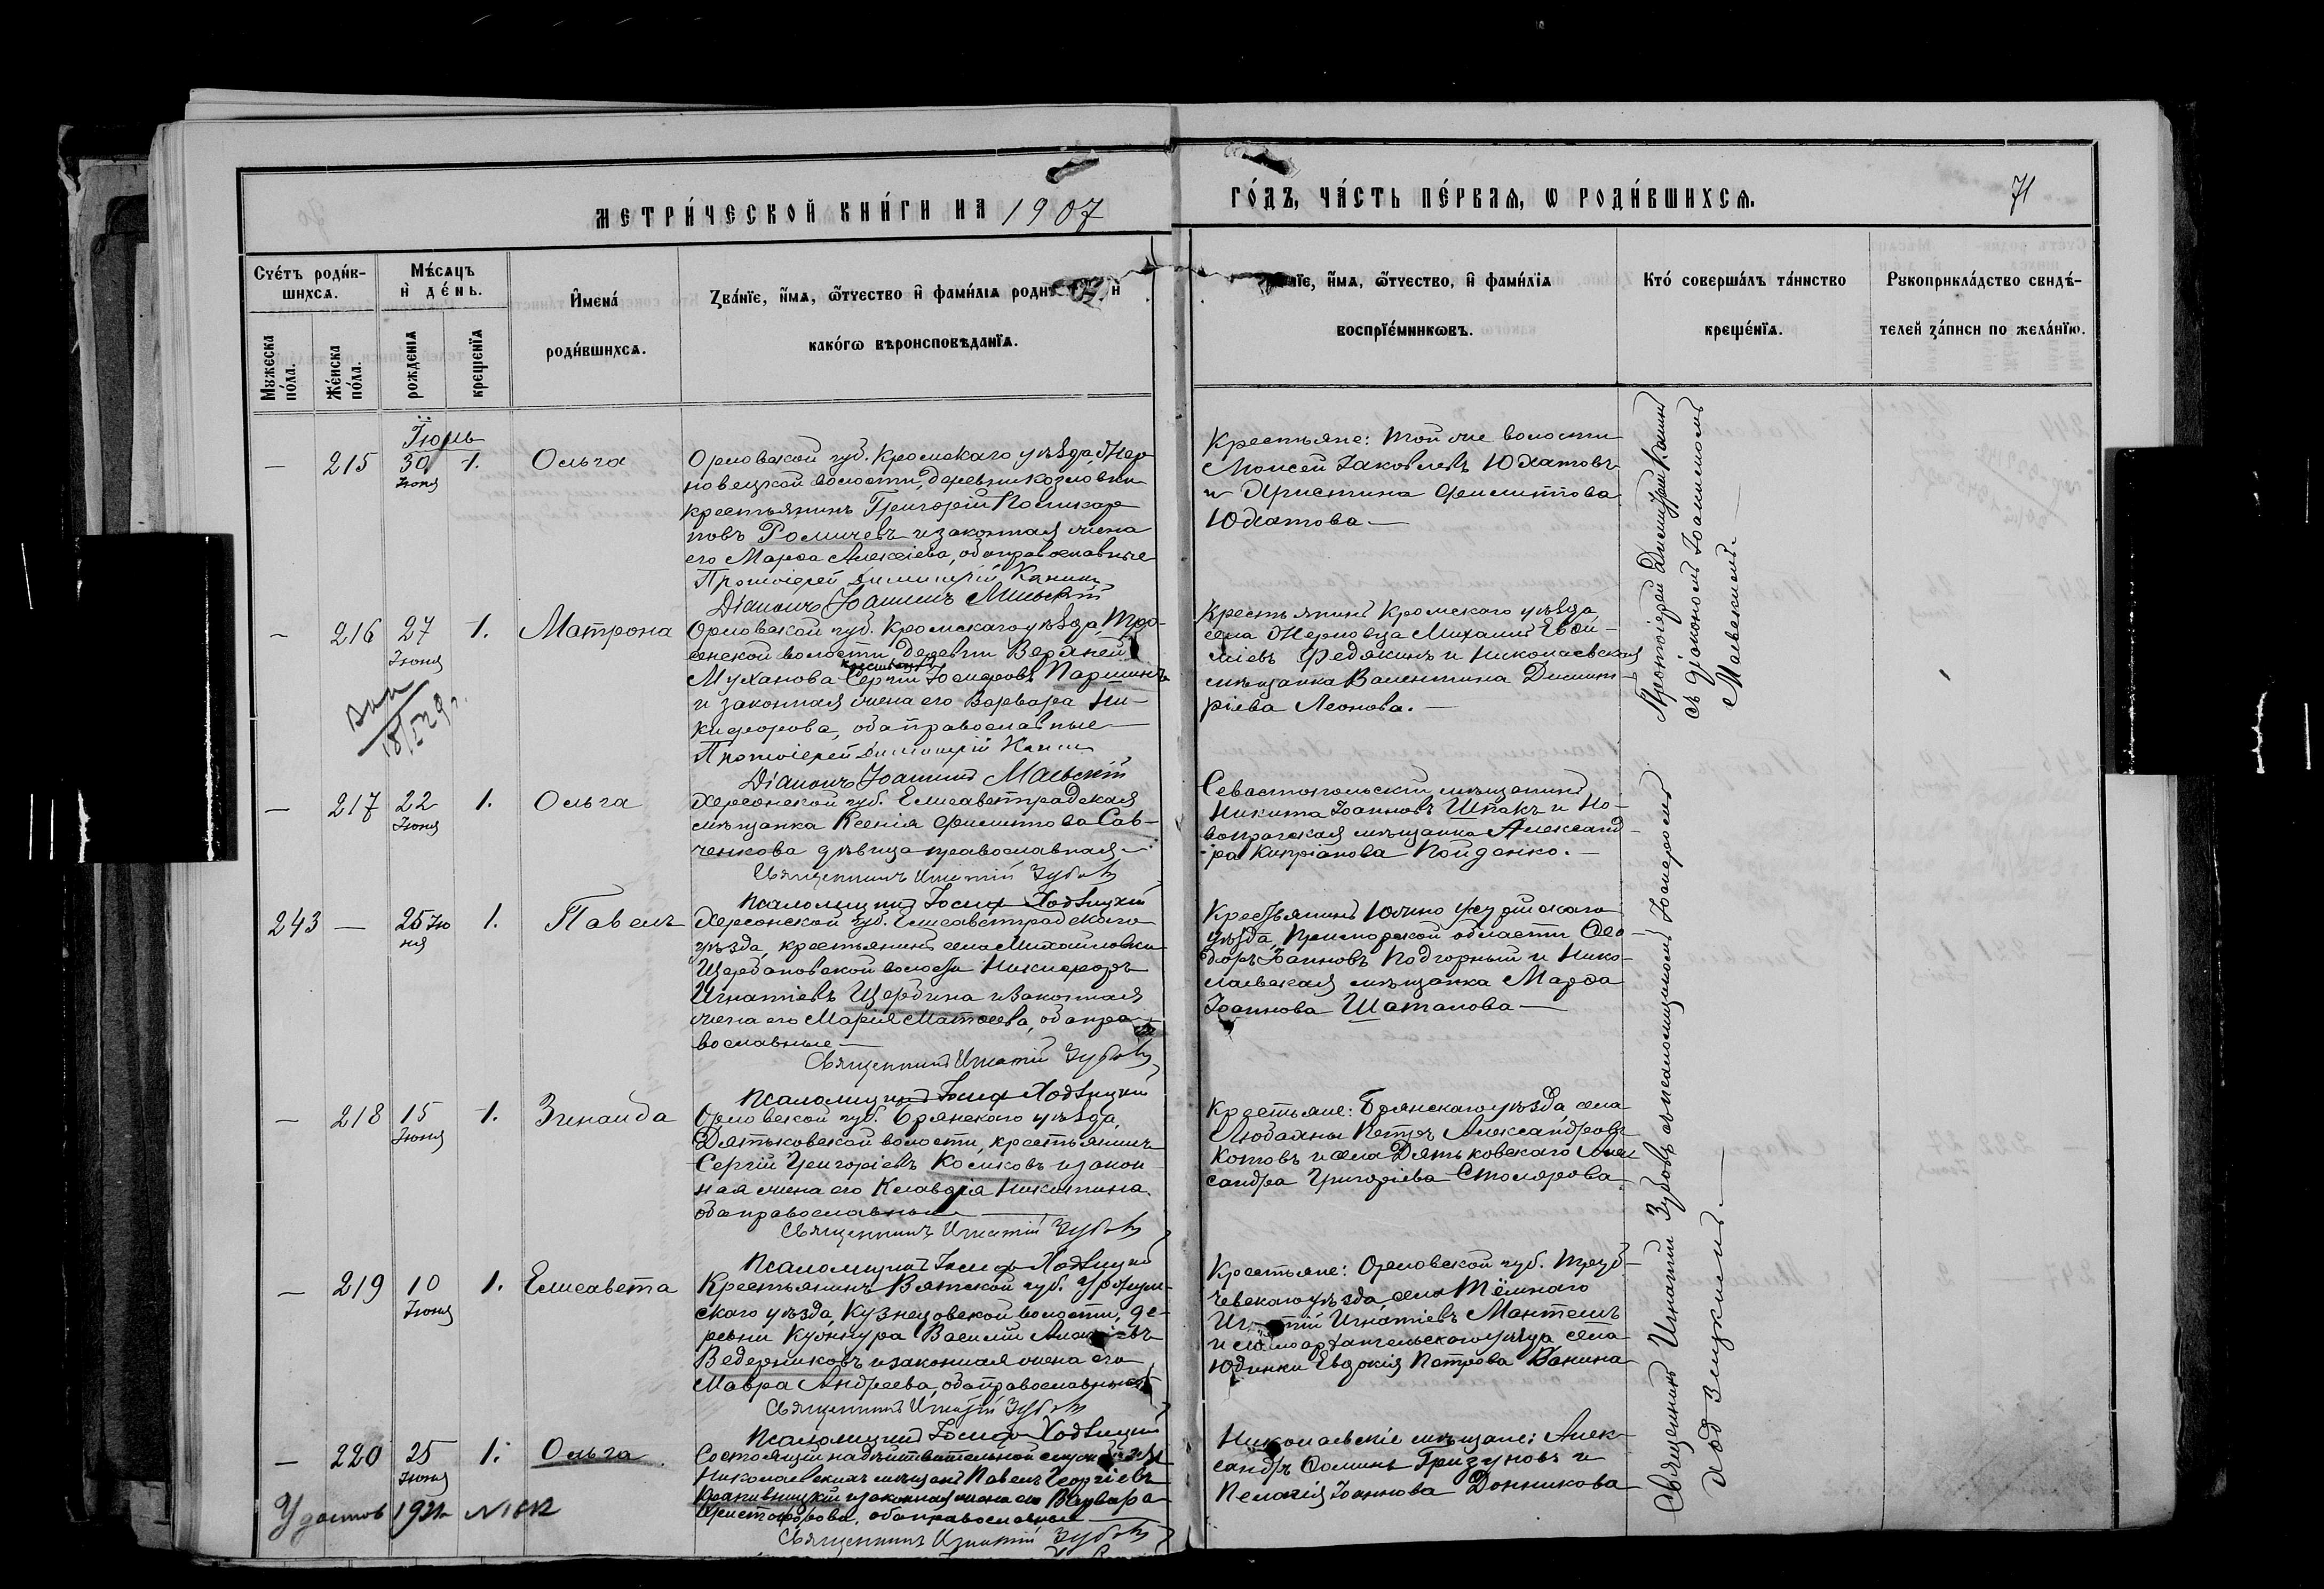 МЕТРИ́ЧЕСКОЙ КНИ́ГИ НА 1907
ГО́ДЪ, ЧА́СТЬ ПЕ́РВАѦ, Ѡ РОДИ́ВШИХСѦ.
71
Счéтъ роди́в-
шихсѧ.
Мужеска
по́ла.
Же́нска
по́ла.
Мѣ́сѧцъ
и҆ де́нь.
рожденїѧ
крещенїѧ
И҆мена́
роди́вшихсѧ.
Зва́нїе, и҆́мѧ, ѻ҆́тчество и҆ фами́лїѧ и҆
како́гѡ вѣроисповѣданїѧ.
и҆́мѧ, ѻ҆́тчество, и҆ фами́лїѧ
воспрїе́мникѡвъ.
Кто́ соверша́лъ та́инство
креще́нїѧ.
Рꙋкоприкла́дство свидѣ́-
телей за́писи по жела́нїю.
Іюль
— 215 30 Іюня 1. Ольга
Орловской губ. Кромскаго уѣзда, Чер-
новецкой волости, деревни Козловки
крестьянинъ Григорій Поликар-
повъ Ромичевъ и законная жена
его Марѳа Алексіева, оба православные
Протоіерей Димитрій Канинъ
Діаконъ Іоаннъ Маевскій
Крестьяне: той же волости
Моисей Іаковлевъ Юхатовъ
и Христина Филиппова
Юхатова —
Протоіерей Димитрій Канинъ
съ діакономъ Іоанномъ
Маевскимъ. —
— 216 27 Іюня 1. Матрона
Орловской губ. Кромскаго уѣзда,
волости деревни Верхней
Муханова крестьянинъ Сергій Паршинъ
и законная жена его Варвара Ни-
кифорова, оба православные
Протоіерей Димитрій Канинъ
Діаконъ Іоаннъ Маевскій
Крестьянинъ Кромскаго уѣзда,
села Черновца Михаилъ Евѳи-
міевъ Федякинъ и Николаевская
мѣщанка Валентина Димит-
ріева Леонова. —
— 217 22 Іюня 1. Ольга
Херсонской губ. Елисаветградская
мѣщанка Ксенія Филиппова Сав-
ченкова дѣвица православная —
Священникъ Игнатій Зубовъ
Псаломщикъ Іосифъ Ходзицкій
Севастопольскій мѣщанинъ
Никита Іоанновъ Шпакъ и Но-
вопражская мѣщанка Александ-
ра Кипріанова Пойденко. —
243 — 25 Іюня 1. Павелъ
Херсонской губ. Елисаветградскаго
уѣзда, крестьянинъ села Михайловки
Щербановской волости Никифоръ
Игнатіевъ Щербина и законная
жена его Марія Матѳеева, оба пра-
вославные —
Священникъ Игнатій Зубовъ
Псаломщикъ Іосифъ Ходзицкій
Крестьянинъ Южно Уссурійскаго
уѣзда, Приморской области Ѳео-
доръ Іоанновъ Подгорный и Нико-
лаевская мѣщанка Марѳа
Іоаннова Шаталова —
— 218 15 Іюня 1. Зинаида
Орловской губ. Брянскаго уѣзда,
Дятьковской волости, крестьянинъ
Сергій Григоріевъ Косиковъ и закон-
ная жена его Клавдія Никитина
оба православные —
Священникъ Игнатій Зубовъ
Псаломщикъ Іосифъ Ходзицкій
Крестьяне: Брянскаго уѣзда, села
Любахны Петръ Александровъ
Котовъ и села Дятьковскаго Алек
сандра Григоріева Столярова
Священникъ Игнатій Зубовъ съ псаломщикомъ Іосифомъ
Ходзицкимъ. —
— 219 10 Іюня 1. Елисавета
Крестьянинъ Вятской губ. Уржум-
скаго уѣзда, Кузнецовской волости, де-
ревни Кукнура Василій
Ведерниковъ и законная жена его
Мавра Андреева, оба православные
Священникъ Игнатій Зубовъ
Псаломщикъ Іосифъ Ходзицкій
Крестьяне: Орловской губ. Труб-
чевскаго уѣзда, села Тёмнаго
Игнатій Игнатіевъ Мантемъ
и Малоархангельскаго уѣзда села
Юдинки Евдокія Петрова Ванина
— 220 25 Іюня 1. Ольга
Состоящій на дѣйствительной службѣ изъ
Николаевскихъ мѣщанъ Павелъ Георгіевъ
Крапивницкій и законная жена его Варвара
Христофорова, оба православные —
Священникъ Игнатій Зубовъ
Николаевскіе мѣщане: Алек-
сандръ Ѳоминъ Гризуновъ и
Пелагія Іоаннова Донникова